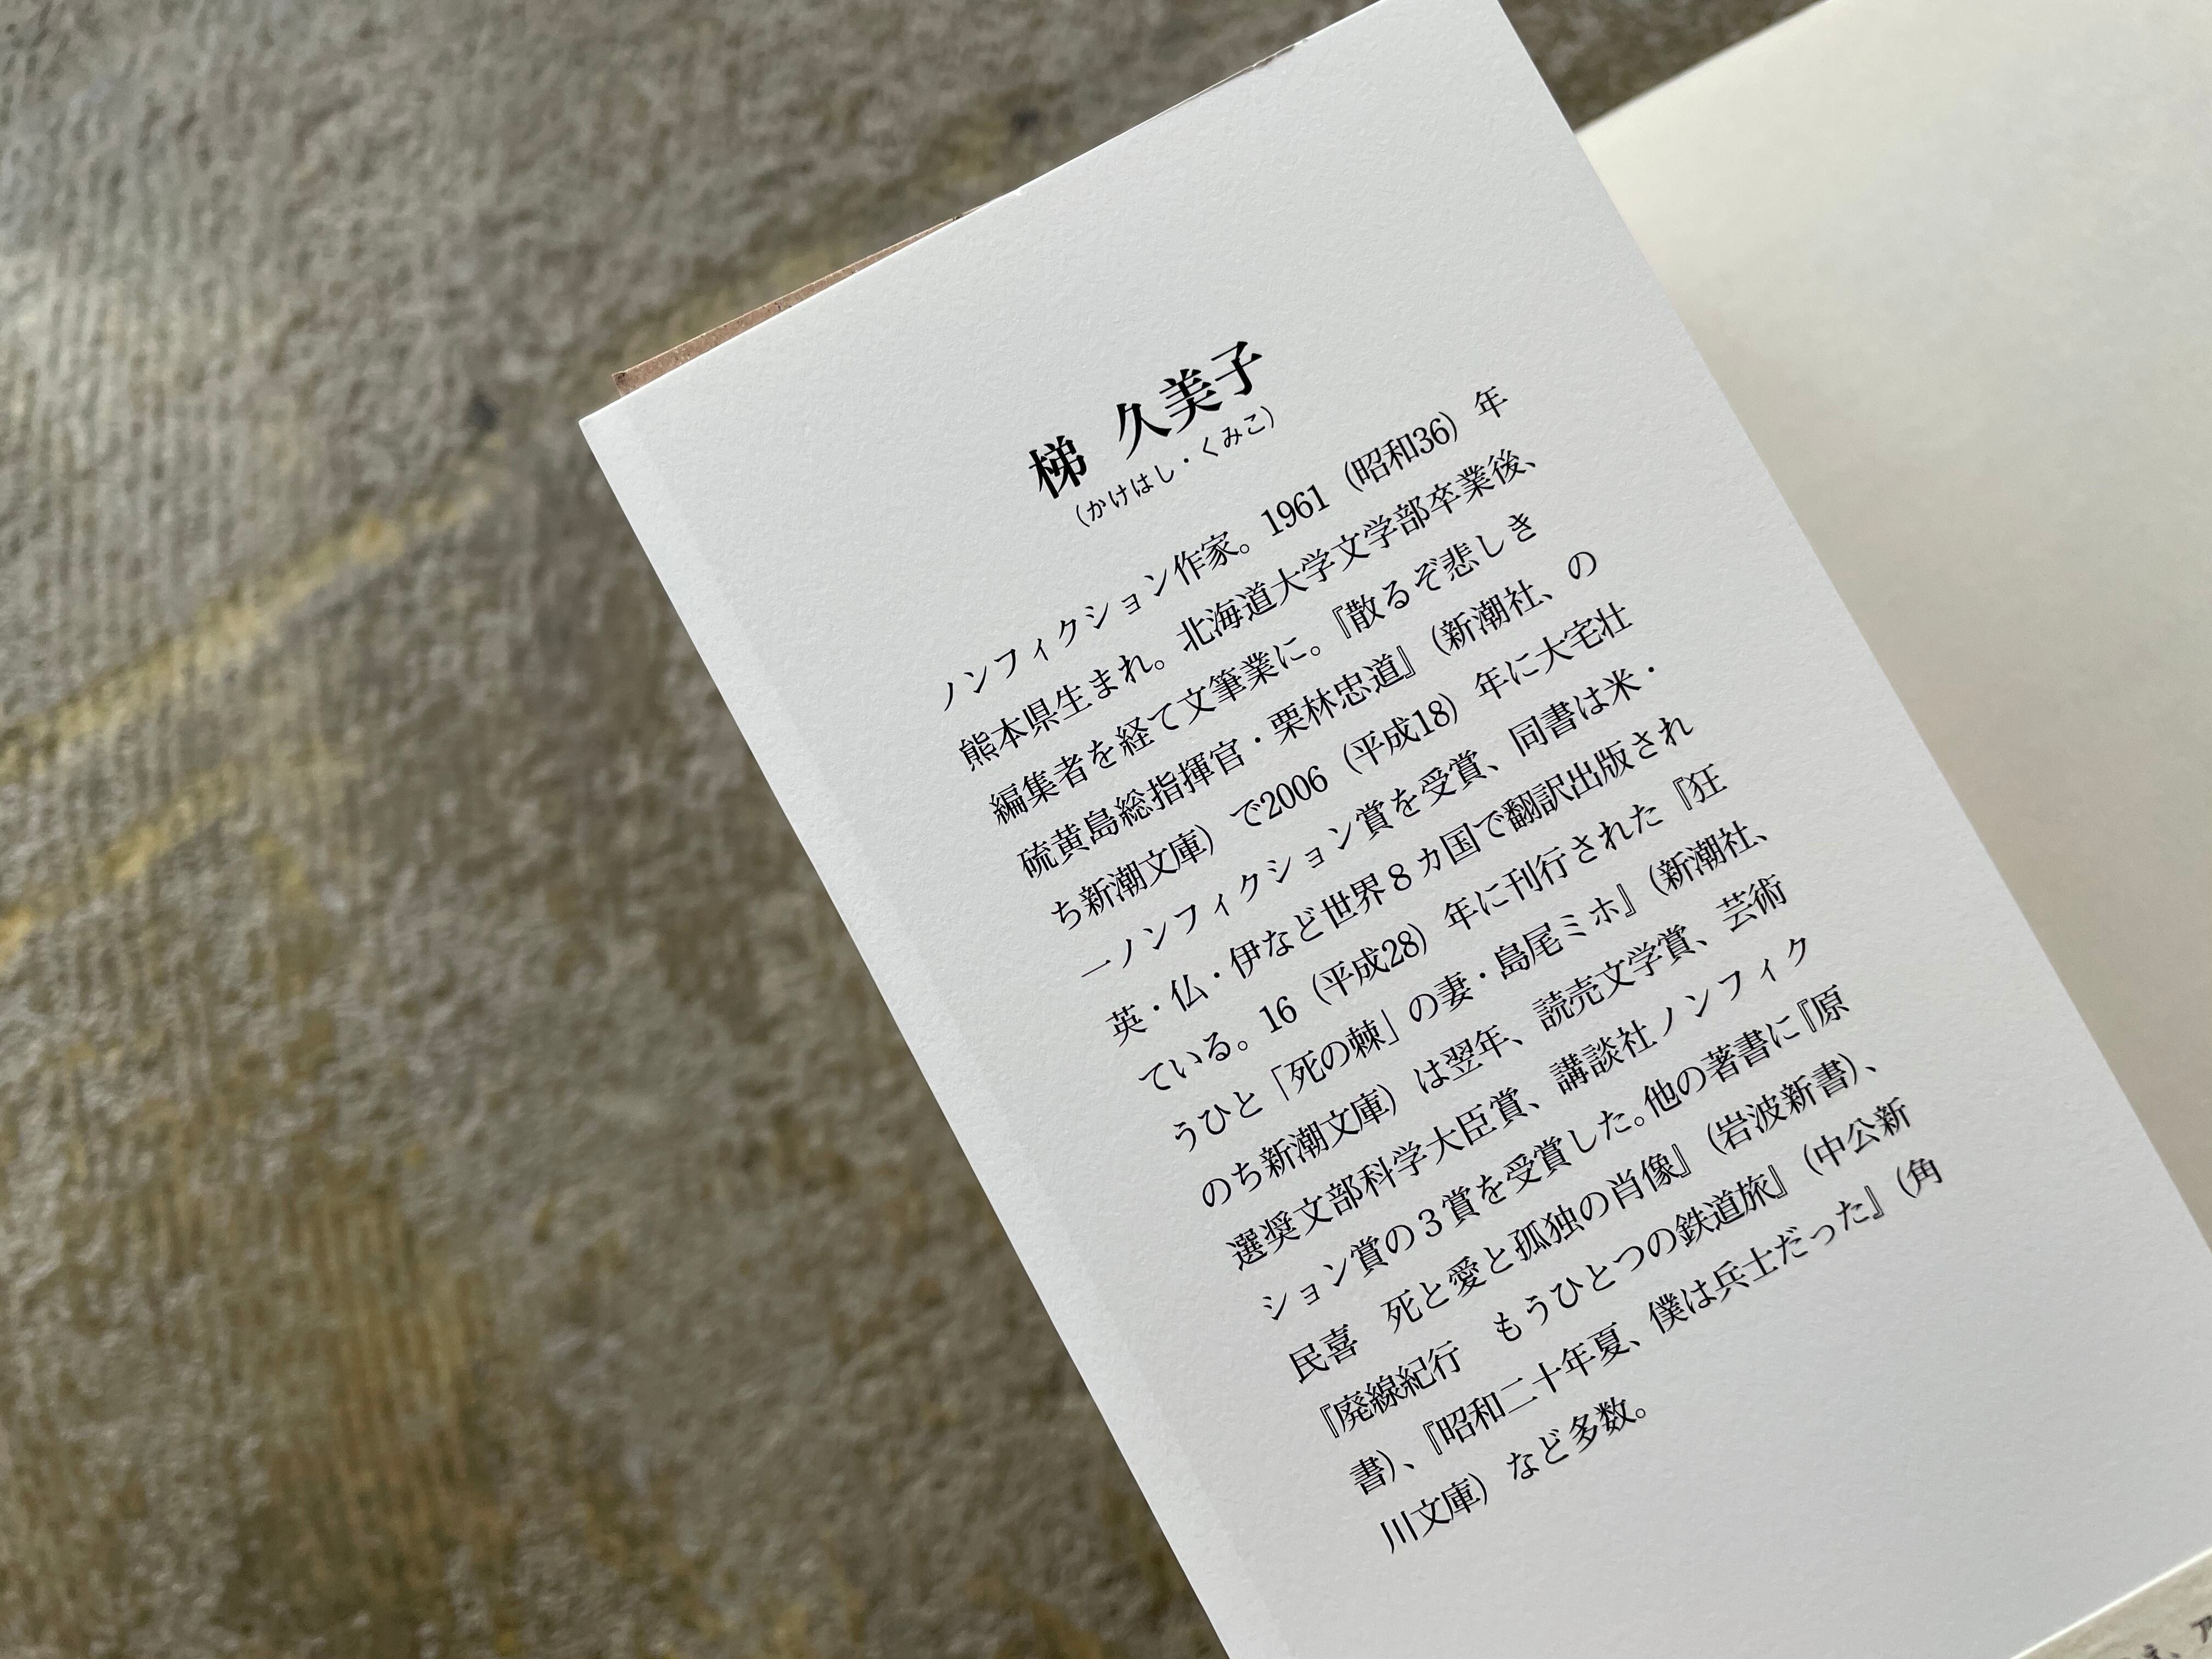 梯 久美子
（かけはし・くみこ）
ノンフィクション作家。1961（昭和36）年
熊本県生まれ。北海道大学文学部卒業後、
編集者を経て文筆業に。『散るぞ悲しき
硫黄島総指揮官・栗林忠道』（新潮社、の
ち新潮文庫）で2006（平成18）年に大宅壮
一ノンフィクション賞を受賞、同書は米・
英・仏・伊など世界８ヵ国で翻訳出版され
ている。16（平成28）年に刊行された『狂
うひと「死の棘」の妻・島尾ミホ』（新潮社、
のち新潮文庫）は翌年、読売文学賞、芸術
選奨文部科学大臣賞、講談社ノンフィク
ション賞の３賞を受賞した。他の著書に『原
民喜　死と愛と孤独の肖像』（岩波新書）、
『廃線紀行　もうひとつの鉄道旅』（中公新
書）、『昭和二十年夏、僕は兵士だった』（角
川文庫）など多数。